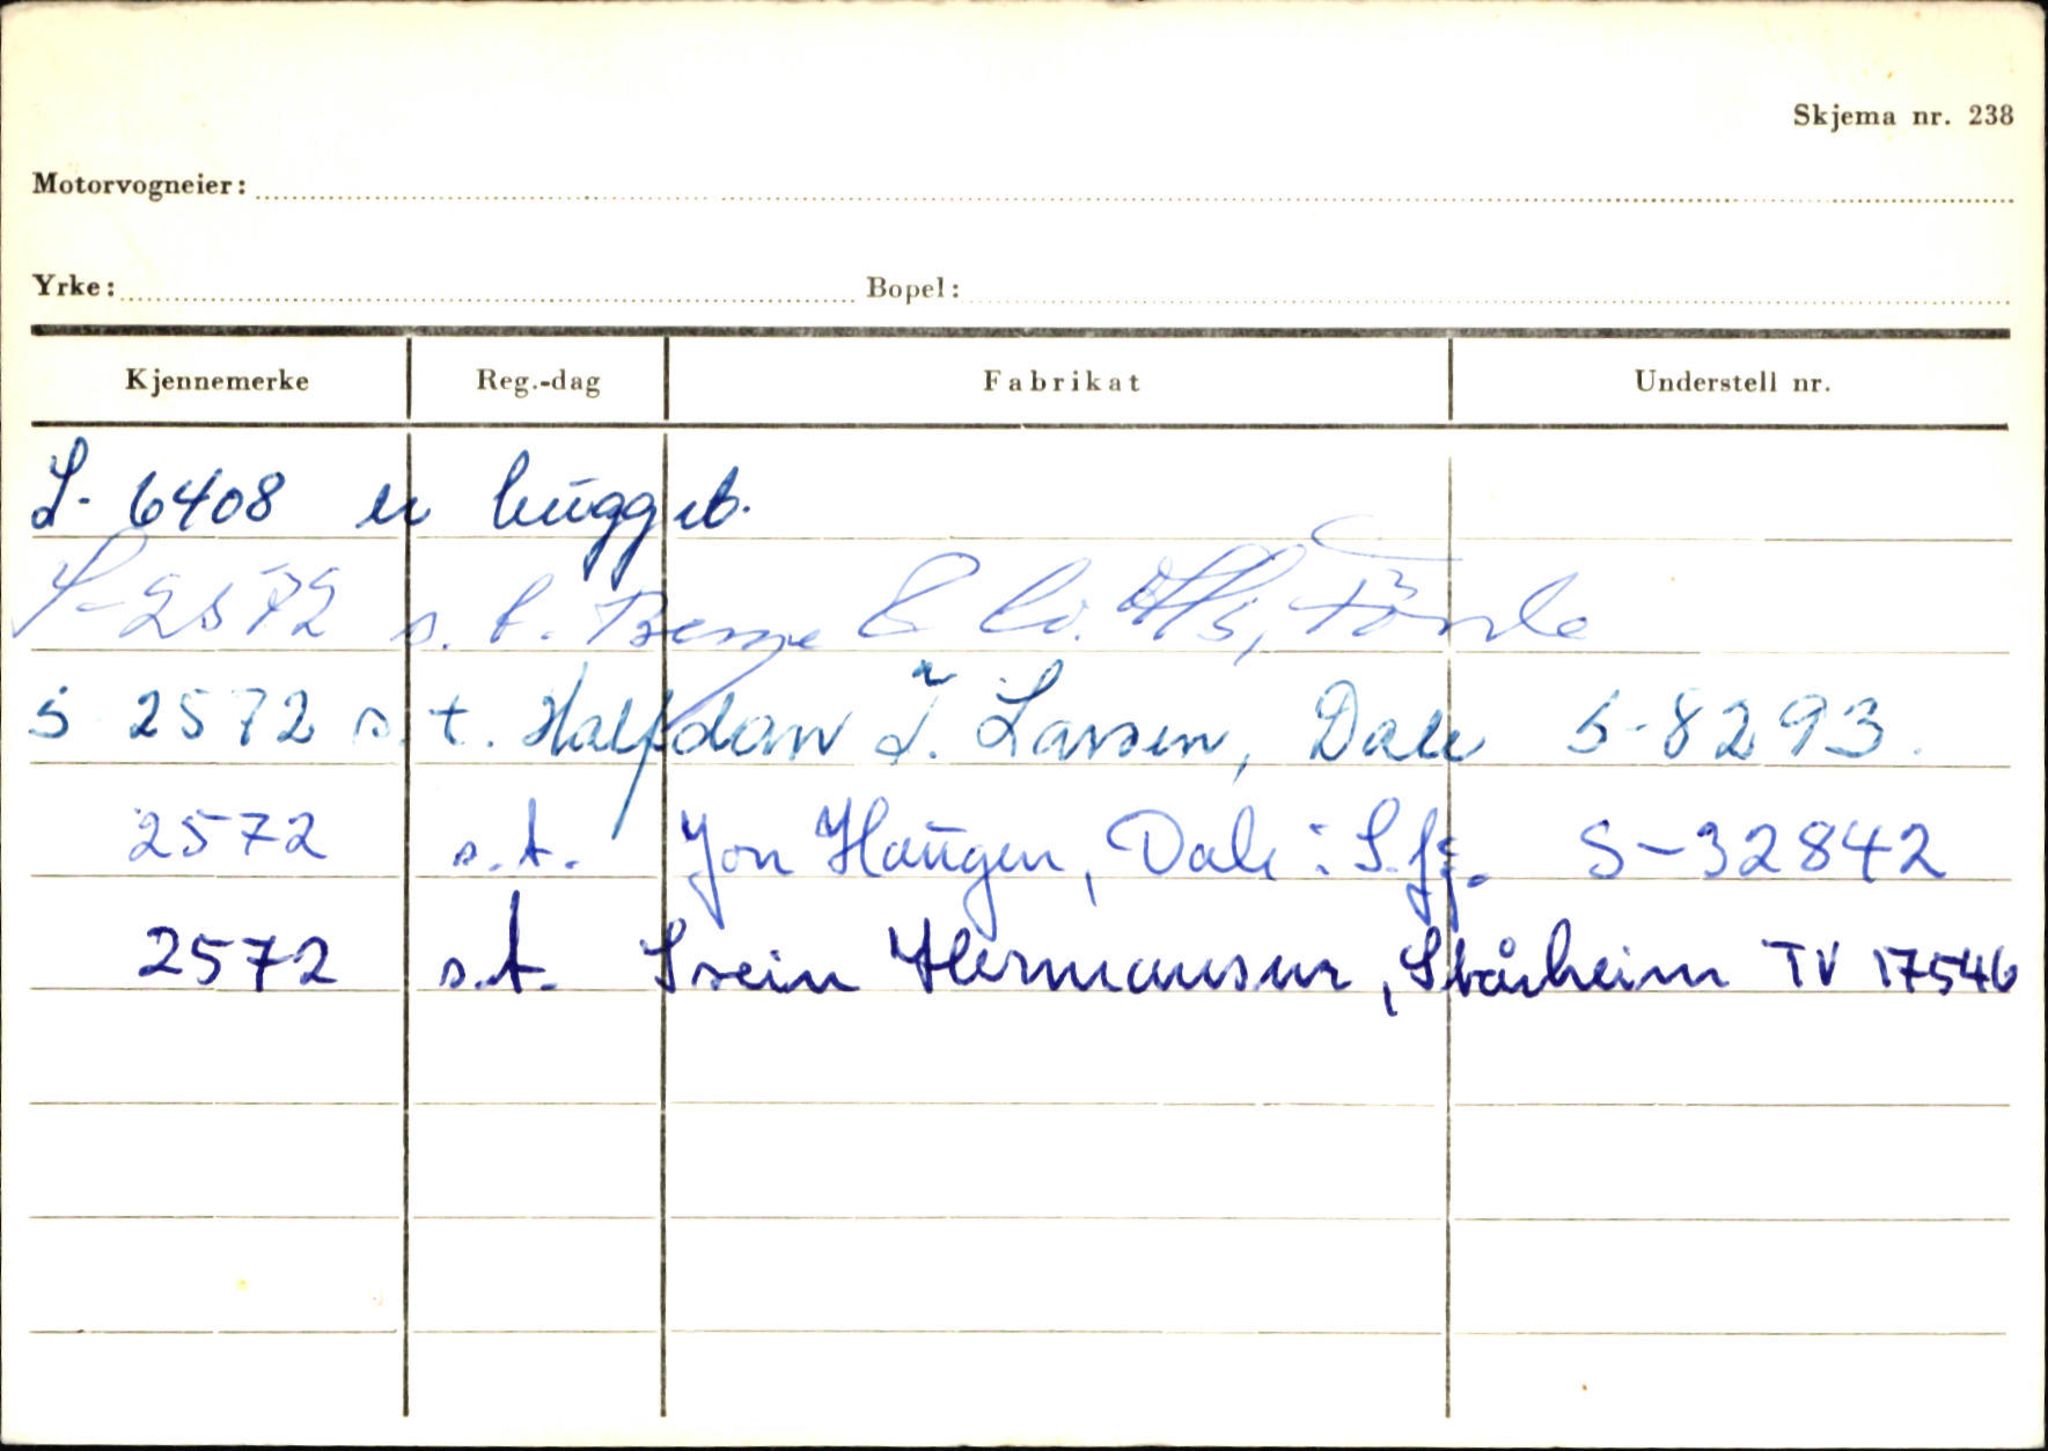 Skjema nr. 238
Motorvogneier:
Yrke: Bopel:
Kjennemerke Reg.-dag Fabrikat Understell nr.
S- 6408 er hugget.
S-2572 s. t. & Co. A/S, Förde
S 2572 s. t. Halfdan I. Larsen, Dale S-8293.
2572 s.t. Jon Haugen, Dale i S.fj. S-32842
2572 s.t. Svein Hermansen, Stårheim TV 17546